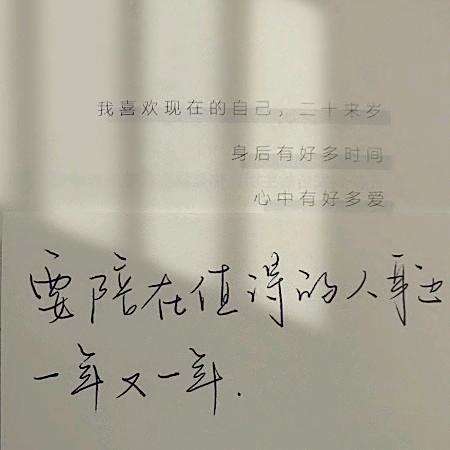 我喜欢现在的自己，二十来岁
身后有好多时间
心中有好多爱
要陪在值得的人身边
一年又一年.